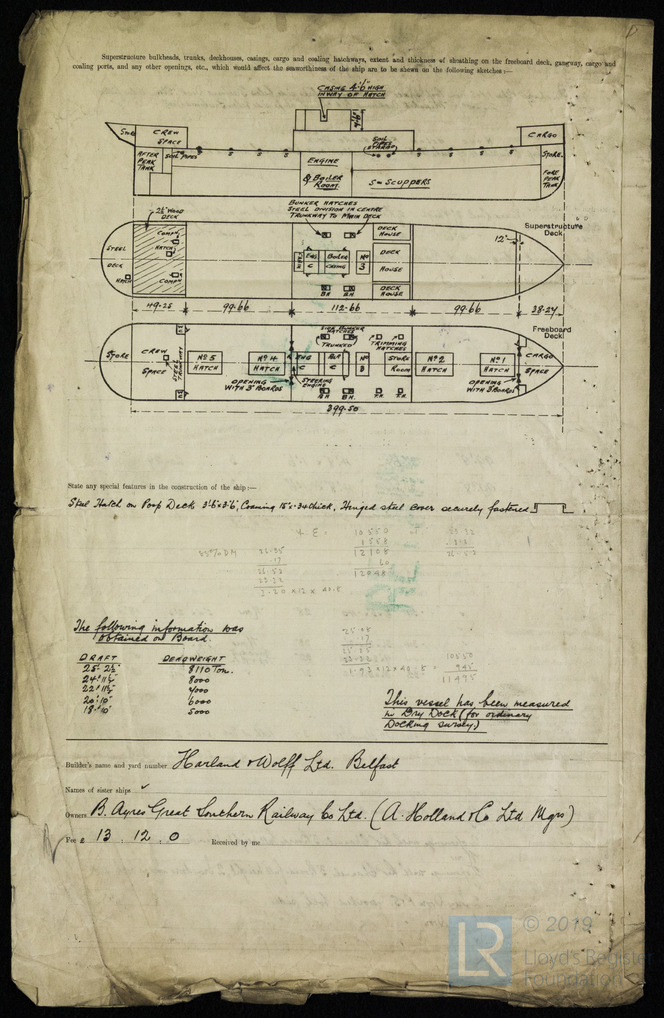 Superstructure bulkheads, trunks, deckhouses, casings, cargo and coaling hatchways, extent and thickness of sheathing on the freeboard deck, gangway, cargo and
coaling ports, and any other openings, etc., which would affect the seaworthiness of the ship are to be shewn on the following sketches:—
CASING 4'6" HIGH
IN WAY OF HATCH
CREW
SPACE
CARGO
AFTER
PEAK
TANK
SOIL PIPES
ENGINE
& BOILER
ROOM
S = SCUPPERS
STORE
FORE
PEAK
TANK
2½" WOOD
DECK
BUNKER HATCHES
STEEL DIVISION IN CENTRE
TRUNKWAY TO MAIN DECK
STEEL
DECK
HATCH
COMPN
HATCH
COMPN
ENG
Boiler
CASING
No
3
DECK
HOUSE
DECK
HOUSE
DECK
HOUSE
B.H. B.H.
12"
Superstructure
Deck
49·25 99·66 112·66 99·66 38·27
Freeboard
Deck
STORE
CREW
SPACE
No 5
HATCH
No 4
HATCH
TRUNKED
TRIMMING
HATCHES
ENG
No
3
STORE
ROOM
No 2
HATCH
No 1
HATCH
CARGO
SPACE
OPENING
WITH 3" BOARDS
STEERING
ENGINE
B.H. B.H. T.H. T.H.
OPENING
WITH 3" BOARDS
399·50
State any special features in the construction of the ship:—
Steel Hatch on Poop Deck 3'6"x3'6", Coaming 15"x·34 thick, Hinged steel cover securely fastened
10550
1558
12108
60
12048
26.52
3.20 x 12 x 40.5
The following information was
obtained on Board.
DRAFT DEADWEIGHT
25' 2½" 8110 Ton.
24' 11¼" 8000
22' 11½" 7000
20' 10" 6000
18' 10" 5000
10550
945
11495
This vessel has been measured
in Dry Dock (for ordinary
Docking survey.)
Builder's name and yard number Harland & Wolff Ltd. Belfast
Names of sister ships
Owners B. Ayres Great Southern Railway Co Ltd. (A. Holland & Co Ltd Mgrs)
Fee £ 13 . 12 . 0 Received by me
LR
© 2019
Lloyd's Register
Foundation